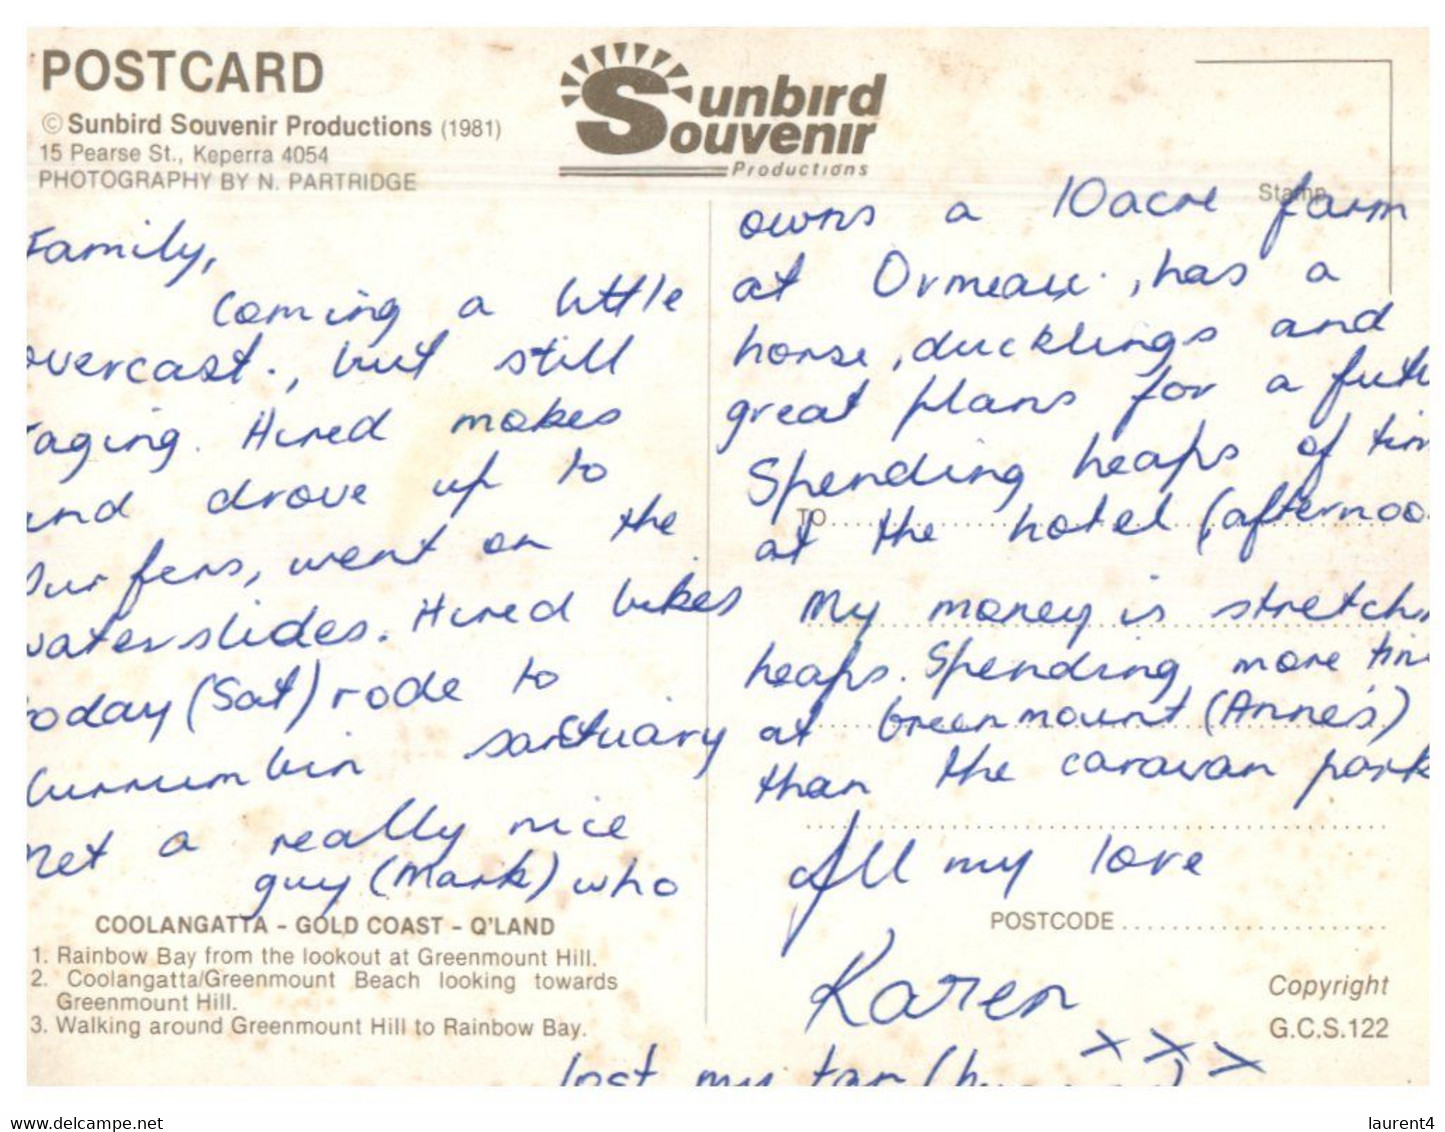 POSTCARD
© Sunbird Souvenir Productions (1981)
15 Pearse St., Keperra 4054
PHOTOGRAPHY BY N. PARTRIDGE
Sunbird
Souvenir
Productions
Stamp
Family,
Coming a little
overcast., but still
raging. Hired mokes
and drove up to
Surfers, went on the
waterslides. Hired bikes
today (Sat) rode to
Currumbin santuary
Met a really nice
guy (Mark) who
COOLANGATTA - GOLD COAST - Q'LAND
1. Rainbow Bay from the lookout at Greenmount Hill.
2. Coolangatta/Greenmount Beach looking towards
Greenmount Hill.
3. Walking around Greenmount Hill to Rainbow Bay.
owns a 10acre farm
at Ormeau., has a
horse, ducklings and
great plans for a futu
Spending heaps of tim
TO
at the hotel (afternoo
My money is stretch
heaps. Spending more tim
at Greenmount (Anne's)
than the caravan park
All my love
POSTCODE
Karen
x x x
Copyright
G.C.S.122
lost my tan
delcampe.net
laurent4